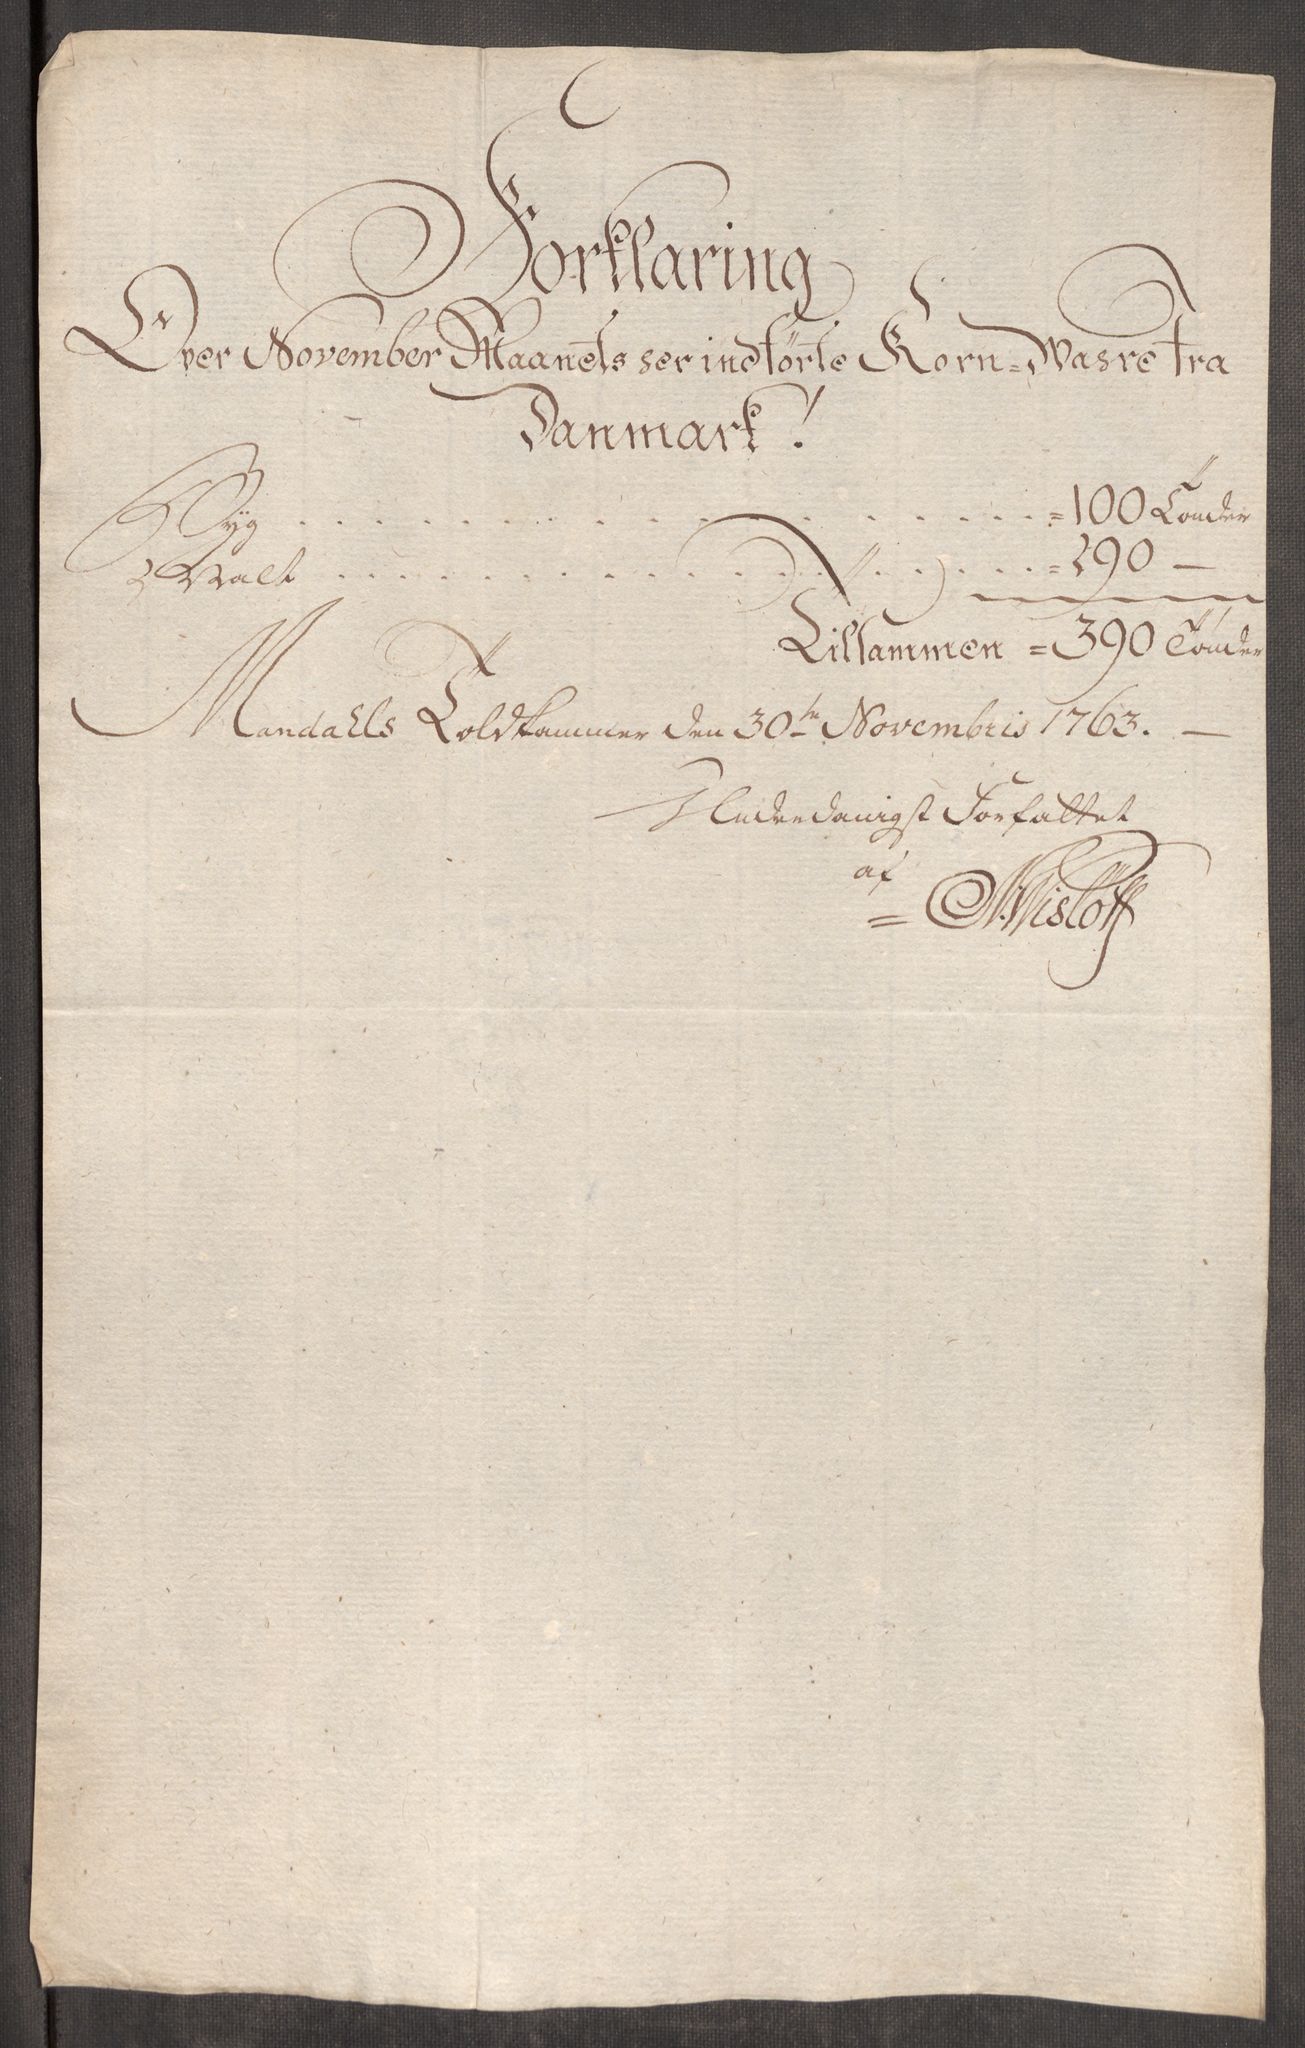 Forklaring
Over November Maanets her indførte Korn=Vahre fra
Danmark!
Byg . . . . . . . . . . . . . . . . = 100 Tønder
Malt . . . . . . . . . . . . . . . = 290 —
Tilsammen = 390 Tønder
Mandahls Toldkammer den 30te Novembris 1763. —
Underdanigst Forfattet
af
= N. Wisløff